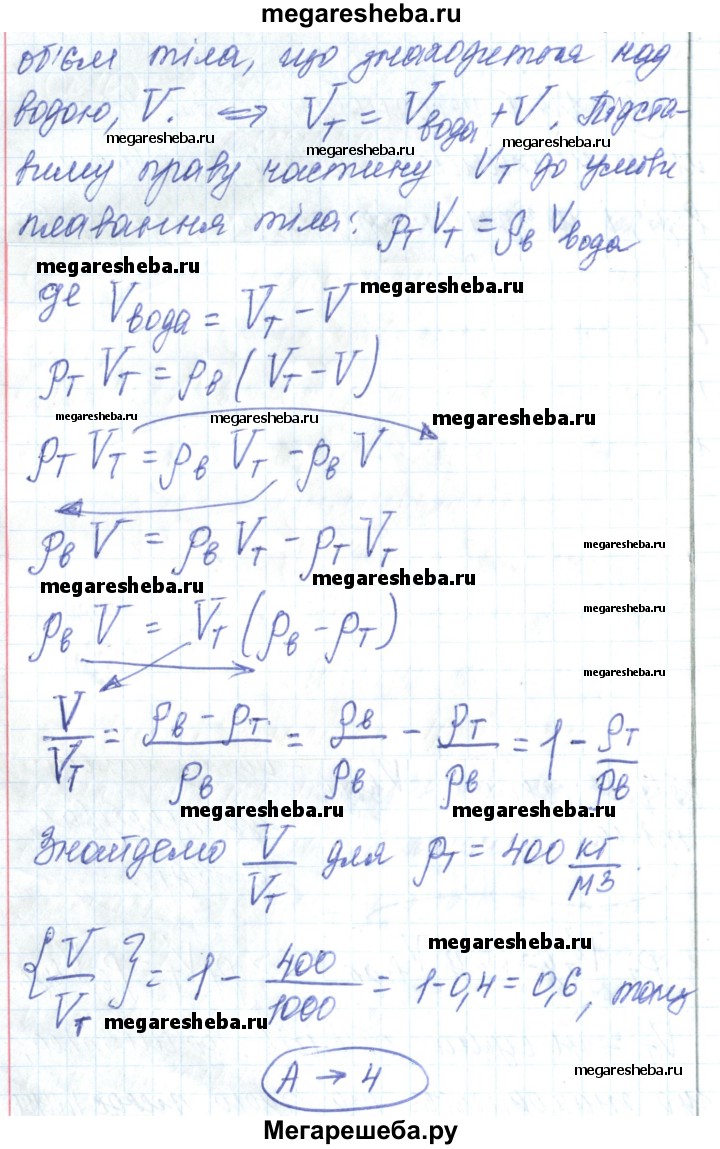 megaresheba.ru
об'єм тіла, що знаходиться над
водою, V. ⟺ Vт = Vвода + V. Підста-
megaresheba.ru megaresheba.ru megaresheba.ru
вимо праву частину Vт до умови
плавання тіла: ρт Vт = ρв Vвода
megaresheba.ru
де Vвода = Vт - V
megaresheba.ru
ρт Vт = ρв (Vт - V)
megaresheba.ru megaresheba.ru megaresheba.ru
ρт Vт = ρв Vт - ρв V
ρв V = ρв Vт - ρт Vт
megaresheba.ru
megaresheba.ru megaresheba.ru
megaresheba.ru
ρв V = Vт (ρв - ρт)
megaresheba.ru
V/Vт = (ρв - ρт)/ρв = ρв/ρв - ρт/ρв = 1 - ρт/ρв
megaresheba.ru megaresheba.ru
Знайдемо V/Vт для ρт = 400 кг/м3.
megaresheba.ru
{V/Vт} = 1 - 400/1000 = 1-0,4 = 0,6, тому
megaresheba.ru
A → 4
megaresheba.ru
Мегарешеба.ру